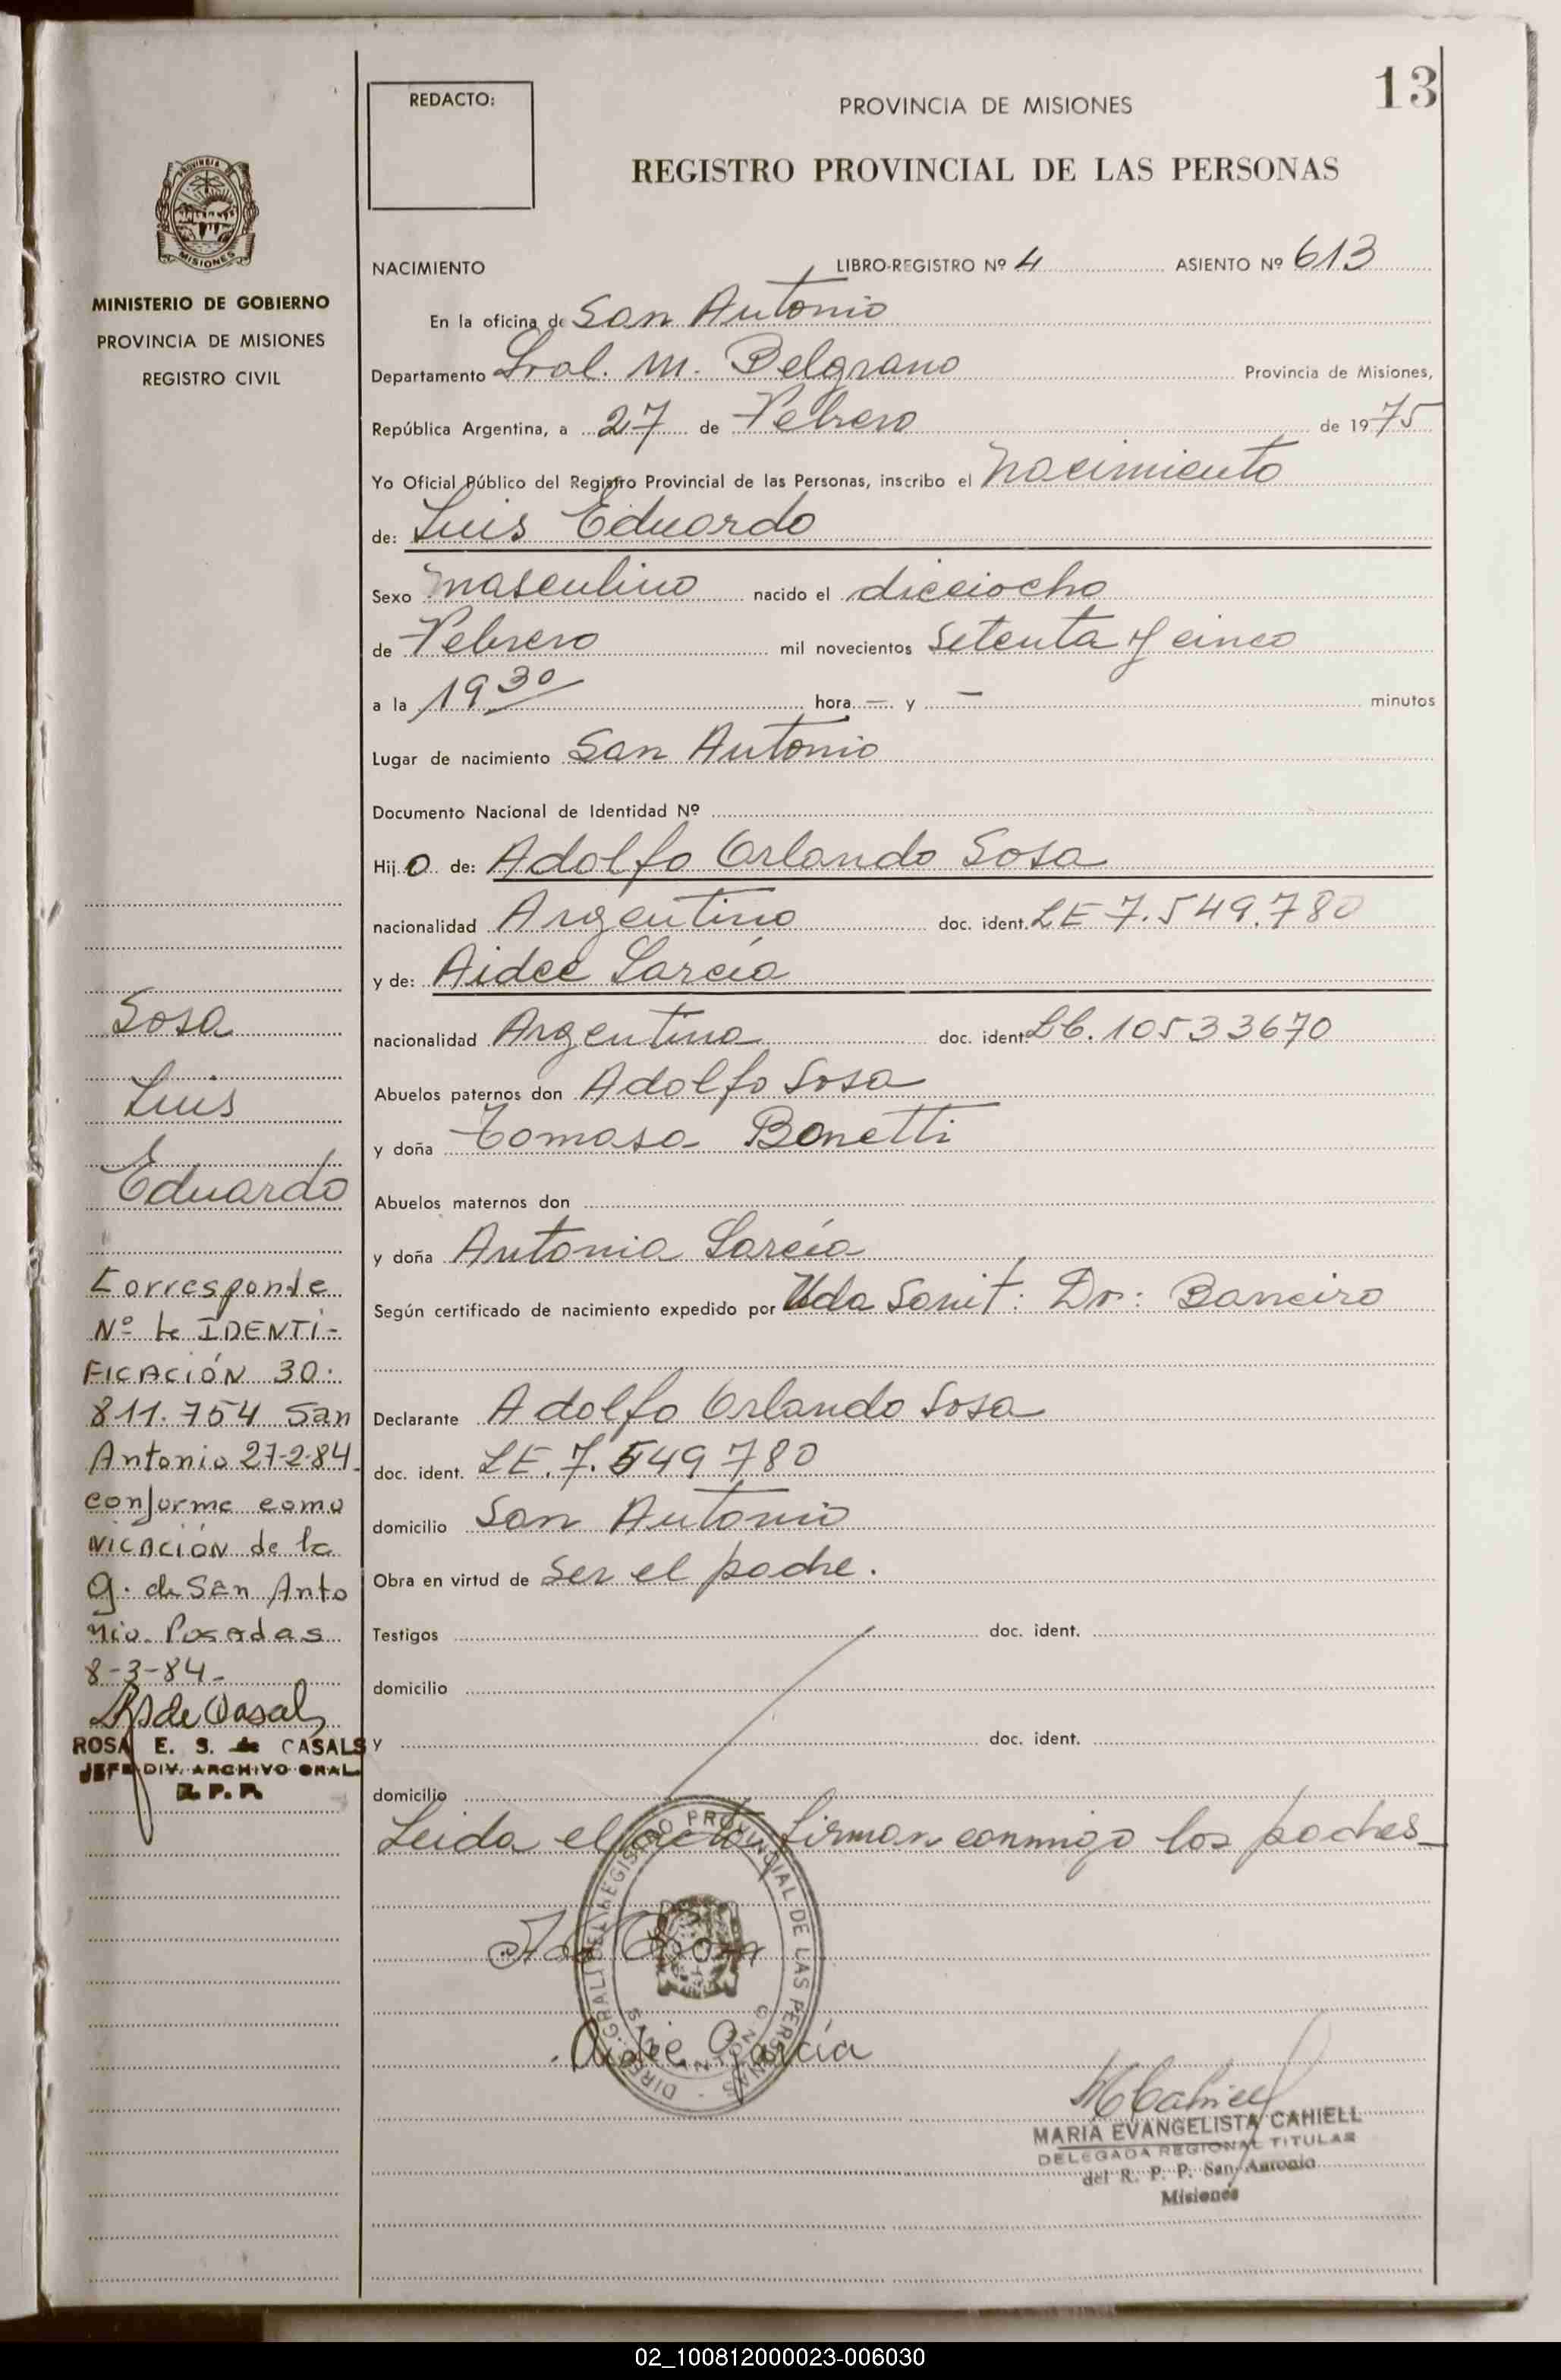 13
REDACTO:
PROVINCIA DE MISIONES
REGISTRO PROVINCIAL DE LAS PERSONAS
PROVINCIA
MISIONES
MINISTERIO DE GOBIERNO
PROVINCIA DE MISIONES
REGISTRO CIVIL
NACIMIENTO LIBRO-REGISTRO Nº 4 ASIENTO Nº 613
En la oficina de San Antonio
Departamento Gral. M. Belgrano Provincia de Misiones,
República Argentina, a 27 de Febrero de 1975
Yo Oficial Público del Registro Provincial de las Personas, inscribo el nacimiento
de: Luis Eduardo
Sexo masculino nacido el dieciocho
de Febrero mil novecientos Setenta y cinco
a la 19 30 hora — y — minutos
Lugar de nacimiento San Antonio
Documento Nacional de Identidad Nº
Hijo de: Adolfo Orlando Sosa
nacionalidad Argentino doc. ident. LE 7.549.780
y de: Aidee García
nacionalidad Argentina doc. ident. LC. 10533670
Abuelos paternos don Adolfo Sosa
y doña Tomasa Bonetti
Abuelos maternos don
y doña Antonia García
Según certificado de nacimiento expedido por Uda Sanit: Dr: Baneiro
Declarante Adolfo Orlando Sosa
doc. ident. LE. 7.549780
domicilio San Antonio
Obra en virtud de Ser el padre.
Testigos doc. ident.
domicilio
y doc. ident.
domicilio
Leida el acta, firman conmigo los padres
Sosa
Luis
Eduardo
Corresponde
Nº de IDENTI-
FICACIÓN 30.
811.754 San
Antonio 27-2-84
conforme comu
NICACIÓN de la
g. de San Anto
nio. Posadas
8-3-84-
ROSA E. S. de CASALS
JEFE DIV. ARCHIVO GRAL
R. P. P.
DIREC. GRAL. DEL REGISTRO PROVINCIAL DE LAS PERSONAS
Aidée García
MCahiell
MARIA EVANGELISTA CAHIELL
DELEGADA REGIONAL TITULAR
del R. P. P. San Antonio
Misiones
02_100812000023-006030